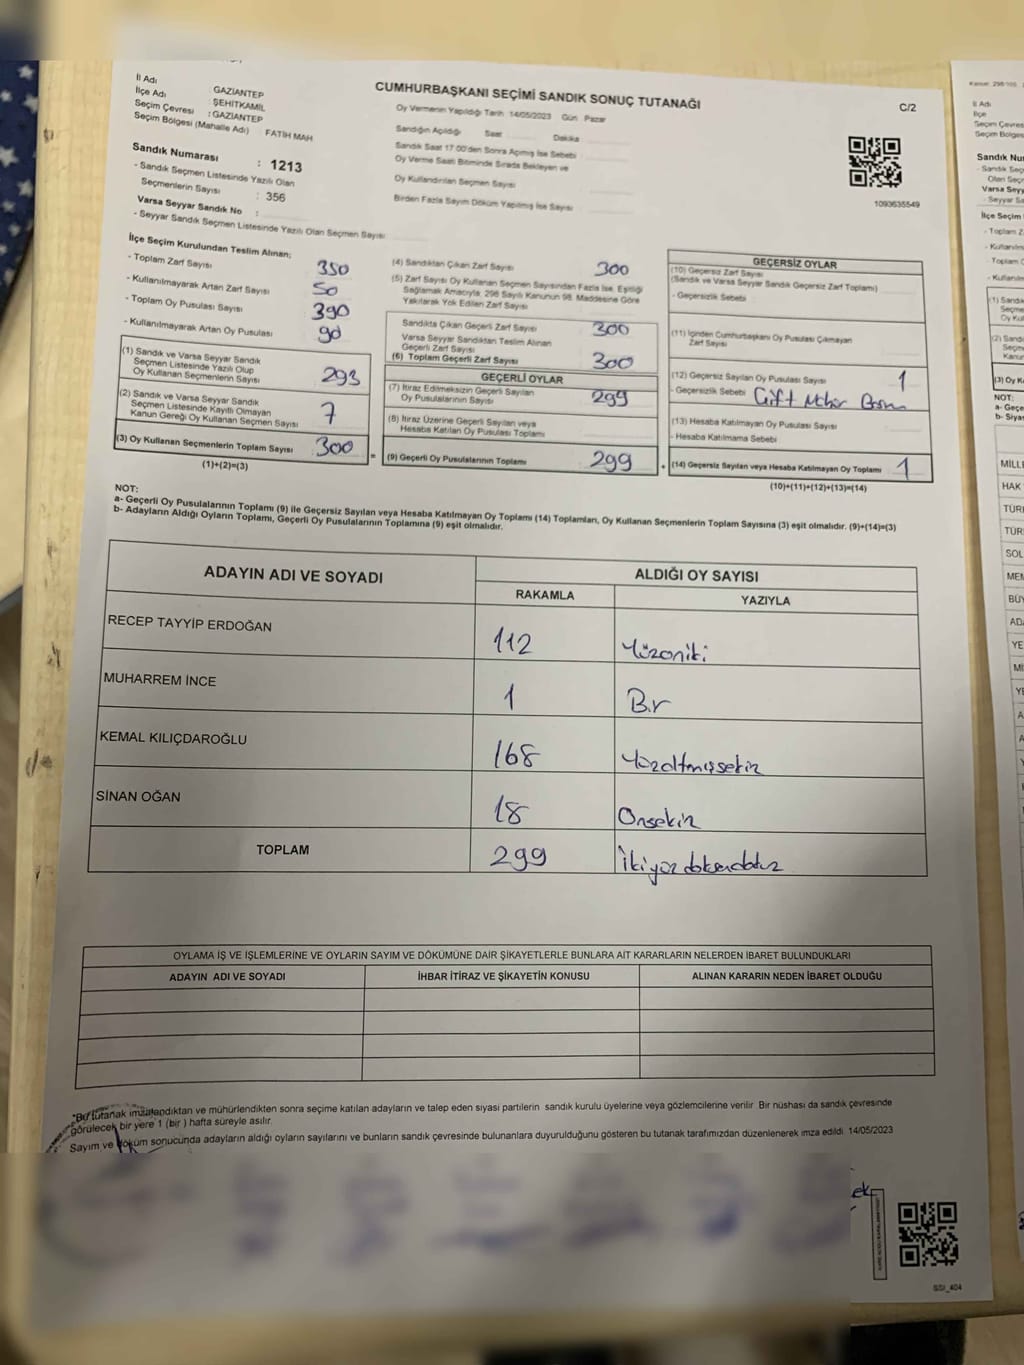 CUMHURBAŞKANI SEÇİMİ SANDIK SONUÇ TUTANAĞI
C/2
İl Adı GAZİANTEP
İlçe Adı ŞEHİTKAMİL
Seçim Çevresi : GAZİANTEP
Seçim Bölgesi (Mahalle Adı) FATİH MAH
Sandık Numarası : 1213
- Sandık Seçmen Listesinde Yazılı Olan
Seçmenlerin Sayısı : 356
Varsa Seyyar Sandık No :
- Seyyar Sandık Seçmen Listesinde Yazılı Olan Seçmen Sayısı
Oy Vermenin Yapıldığı Tarih 14/05/2023 Gün Pazar
Sandığın Açıldığı Saat Dakika
Sandık Saat 17.00'den Sonra Açılmış İse Sebebi
Oy Verme Saati Bitiminde Sırada Bekleyen ve
Oy Kullandırılan Seçmen Sayısı
Birden Fazla Sayım Döküm Yapılmış İse Sayısı
1093635549
İlçe Seçim Kurulundan Teslim Alınan;
- Toplam Zarf Sayısı 350
- Kullanılmayarak Artan Zarf Sayısı 50
- Toplam Oy Pusulası Sayısı 390
- Kullanılmayarak Artan Oy Pusulası 90
(1) Sandık ve Varsa Seyyar Sandık
Seçmen Listesinde Yazılı Olup
Oy Kullanan Seçmenlerin Sayısı 293
(2) Sandık ve Varsa Seyyar Sandık
Seçmen Listesinde Kayıtlı Olmayan
Kanun Gereği Oy Kullanan Seçmen Sayısı 7
(3) Oy Kullanan Seçmenlerin Toplam Sayısı 300
(1)+(2)=(3)
(4) Sandıktan Çıkan Zarf Sayısı 300
(5) Zarf Sayısı Oy Kullanan Seçmen Sayısından Fazla İse, Eşitliği
Sağlamak Amacıyla, 298 Sayılı Kanunun 98. Maddesine Göre
Yakılarak Yok Edilen Zarf Sayısı
Sandıkta Çıkan Geçerli Zarf Sayısı 300
Varsa Seyyar Sandıktan Teslim Alınan
Geçerli Zarf Sayısı
(6) Toplam Geçerli Zarf Sayısı 300
GEÇERLİ OYLAR
(7) İtiraz Edilmeksizin Geçerli Sayılan
Oy Pusulalarının Sayısı 299
(8) İtiraz Üzerine Geçerli Sayılan veya
Hesaba Katılan Oy Pusulası Toplamı
(9) Geçerli Oy Pusulalarının Toplamı 299
GEÇERSİZ OYLAR
(10) Geçersiz Zarf Sayısı
(Sandık ve Varsa Seyyar Sandık Geçersiz Zarf Toplamı)
- Geçersizlik Sebebi
(11) İçinden Cumhurbaşkanı Oy Pusulası Çıkmayan
Zarf Sayısı
(12) Geçersiz Sayılan Oy Pusulası Sayısı 1
- Geçersizlik Sebebi Çift Mühür
(13) Hesaba Katılmayan Oy Pusulası Sayısı
- Hesaba Katılmama Sebebi
(14) Geçersiz Sayılan veya Hesaba Katılmayan Oy Toplamı 1
(10)+(11)+(12)+(13)=(14)
NOT:
a- Geçerli Oy Pusulalarının Toplamı (9) ile Geçersiz Sayılan veya Hesaba Katılmayan Oy Toplamı (14) Toplamları, Oy Kullanan Seçmenlerin Toplam Sayısına (3) eşit olmalıdır. (9)+(14)=(3)
b- Adayların Aldığı Oyların Toplamı, Geçerli Oy Pusulalarının Toplamına (9) eşit olmalıdır.
ADAYIN ADI VE SOYADI ALDIĞI OY SAYISI
RAKAMLA YAZIYLA
RECEP TAYYİP ERDOĞAN 112 Yüzoniki
MUHARREM İNCE 1 Bir
KEMAL KILIÇDAROĞLU 168 Yüzaltmışsekiz
SİNAN OĞAN 18 Onsekiz
TOPLAM 299 İkiyüzdoksandokuz
OYLAMA İŞ VE İŞLEMLERİNE VE OYLARIN SAYIM VE DÖKÜMÜNE DAİR ŞİKAYETLERLE BUNLARA AİT KARARLARIN NELERDEN İBARET BULUNDUKLARI
ADAYIN ADI VE SOYADI İHBAR İTİRAZ VE ŞİKAYETİN KONUSU ALINAN KARARIN NEDEN İBARET OLDUĞU
"Bu tutanak imzalandıktan ve mühürlendikten sonra seçime katılan adayların ve talep eden siyasi partilerin sandık kurulu üyelerine veya gözlemcilerine verilir. Bir nüshası da sandık çevresinde
görülecek bir yere 1 (bir) hafta süreyle asılır.
Sayım ve döküm sonucunda adayların aldığı oyların sayılarını ve bunların sandık çevresinde bulunanlara duyurulduğunu gösteren bu tutanak tarafımızdan düzenlenerek imza edildi. 14/05/2023
SSI_404